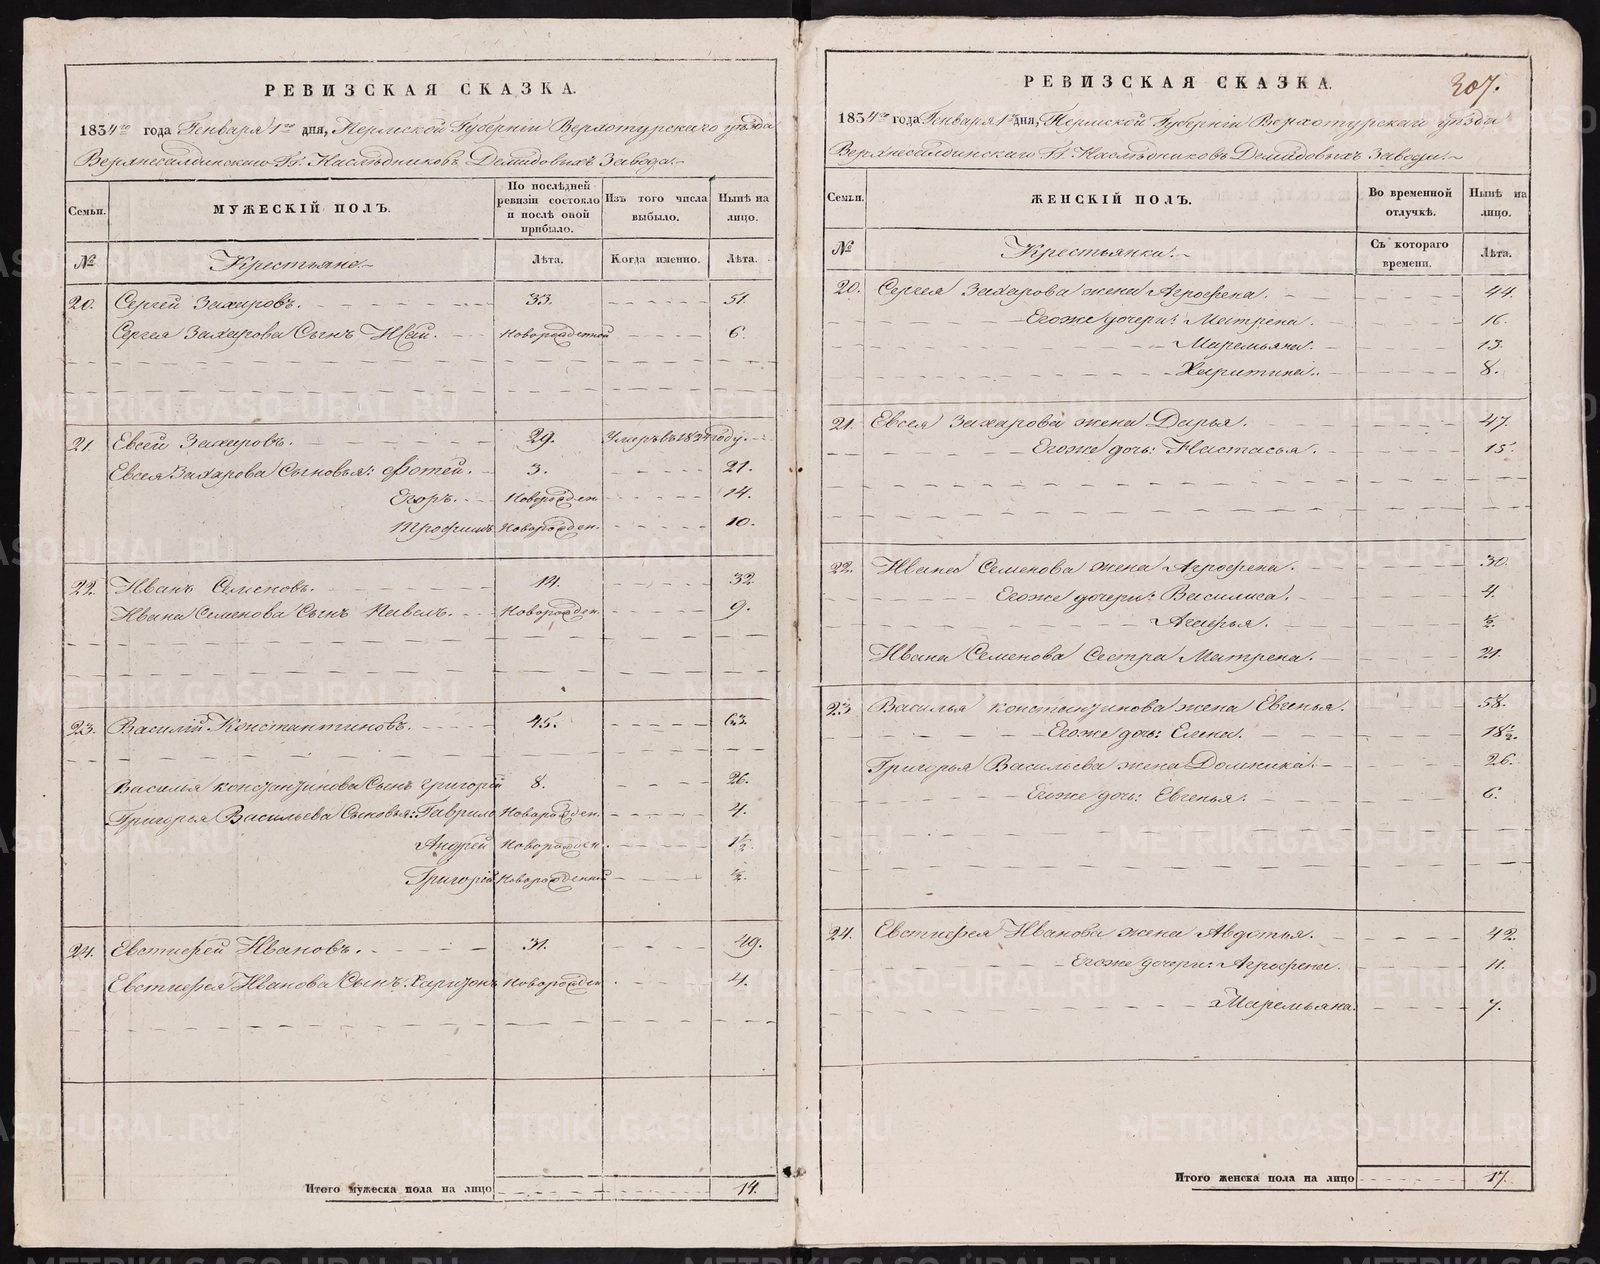 РЕВИЗСКАЯ СКАЗКА.
1834го года Генваря 1го дня, Пермской Губерніи Верхотурскаго уѣзда
Верхнесалдинскаго Гг. Наслѣдниковъ Демидовыхъ Завода.
Семьи. МУЖЕСКІЙ ПОЛЪ. По послѣдней ревизіи состояло и послѣ оной прибыло. Изъ того числа выбыло. Нынѣ на лицо.
№ Крестьяне. Лѣта. Когда именно. Лѣта.
20. Сергей Захаровъ. 33. 51.
Сергея Захарова Сынъ Новорожденной 6.
21. Евсей Захаровъ. 29. Умеръ въ году. 
Евсея Захарова Сыновья: Фотей. 3. 21.
Егоръ. Новорожден. 14.
Трофимъ Новорожден. 10.
22. Иванъ Семеновъ. 14. 32.
Ивана Семенова Сынъ Павелъ. Новорожден. 9.
23. Василій Константиновъ. 45. 63.
Василья Константинова Сынъ Григорій 8. 26.
Григорья Васильева Сыновья: Гаврило Новорожден. 4.
Андрей Новорожден. 1½.
Григорій Новорожденной ½.
24. Евстифей Ивановъ. 31. 49.
Евстифея Иванова Сынъ: Харитонъ Новорожден 4.
Итого мужеска пола на лицо 14.
307.
РЕВИЗСКАЯ СКАЗКА.
1834го года Генваря 1го дня, Пермской Губерніи Верхотурскаго уѣзда
Верхнесалдинскаго Гг. Наслѣдниковъ Демидовыхъ Завода.
Семьи. ЖЕНСКІЙ ПОЛЪ. Во временной отлучкѣ. Нынѣ на лицо.
№ Крестьянки. Съ котораго времени. Лѣта.
20. Сергея Захарова жена Агрофена. 44.
Егоже дочери: Матрена. 16.
Маремьяна. 13.
Харитина. 8.
21. Евсея Захарова жена Дарья. 47.
Егоже дочь: Настасья. 15.
22. Ивана Семенова жена Агрофена. 30.
Егоже дочери: Василиса. 4.
½.
Ивана Семенова Сестра Матрена. 21.
23 Василья Константинова жена Евгенья. 58.
Егоже дочь: Елена. 18½.
Григорья Васильева жена Домника. 26.
Егоже дочь: Евгенья. 6.
24. Евстифея Иванова жена Авдотья. 42.
Егоже дочери: Агрофена. 11.
Маремьяна. 7.
Итого женска пола на лицо 17.
METRIKI.GASO-URAL.RU